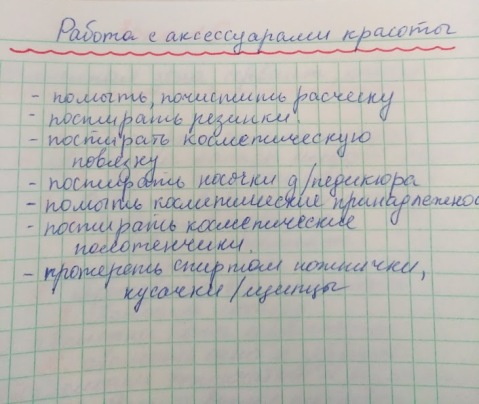 Работа с аксессуарами красоты
- помыть, почистить расческу
- постирать резинки
- постирать косметическую
повязку
- постирать носочки д/педикюра
- помыть косметические принадлежнос
- постирать косметические
полотенчики.
- протереть спиртом ножнички,
кусачки/щипцы